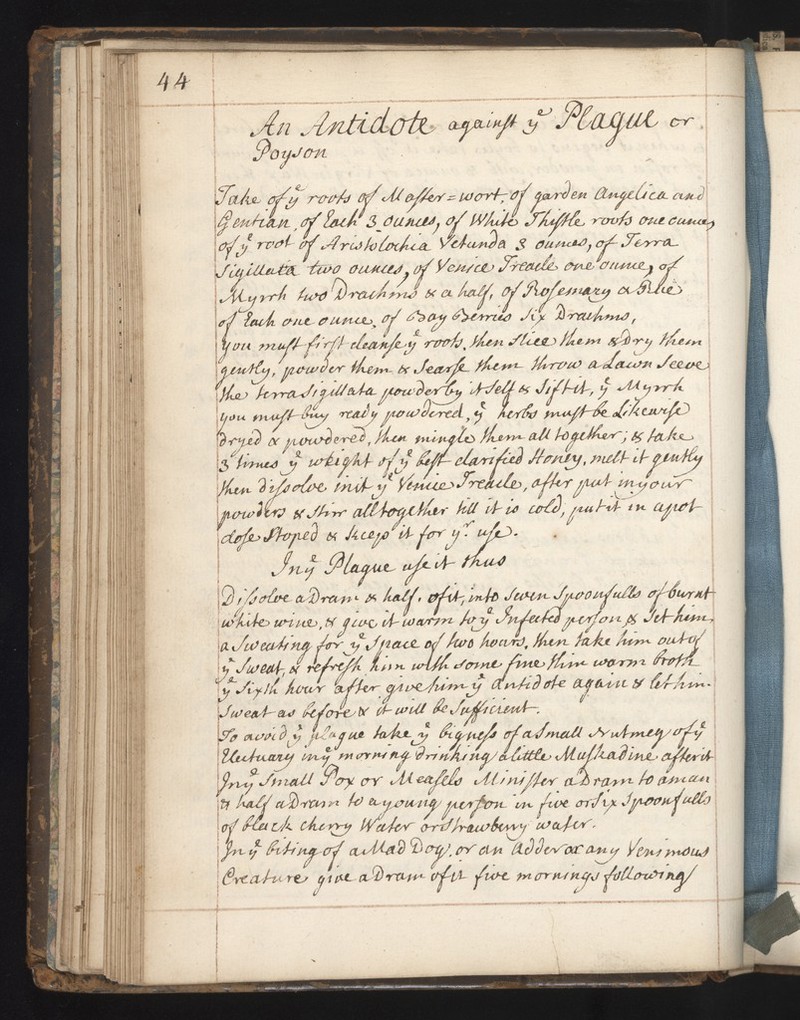 44
An Antidote against yͤ Plague or
Poyson
Take of yͤ roots of Master=wort, of garden Angelica and
Gentian, of Each 3 ounces, of White Thistle roots one ounce,
of yͤ root of Aristolochia Retunda 3 ounces, of Terra
Sigillata two ounces, of Venice Treacle one ounce, of
Myrrh two Drachms & a half, of Rosemary & Rue
of Each one ounce, of Bay Berries Six Drachms,
you must first cleanse yͤ roots, then slice them & Dry them
gently, powder them & Searse them throw a Lawn Seeve
the terra Sigillata powder by it Self & Sift it, yͤ Myrrh
you must buy ready powdered, yͤ herbs must be Likewise
dryed & powdered, then mingle them all together; & take
3 times yͤ weight of yͤ best clarified Honey, melt it gently
then dissolve in it yͤ Venice Treacle, after put in your
powders & Stirr all together till it is cold, put it in a pot
close Stoped & keep it for yͬ use.
In yͤ Plague use it thus
Dissolve a Dram & half, of it, into Seven Spoonfulls of burnt
white wine, & give it warm to yͤ Infected person & Set him
a Sweating for yͤ Space of two hours, then take him out of
yͤ Sweat, & refresh him with some fine thin warm broth
yͤ Sixth hour after give him yͤ antidote again & let him
Sweat as before & it will be Sufficient.
To avoid yͤ plague take yͤ bigness of a Small Nutmeg of yͤ
Electuary in yͤ morning drinking a little Muskadine after it
In yͤ Small Pox or Measels Minister a Dram to a man
& half a Dram to a young person in five or Six Spoonfulls
of black cherry Water or Strawberry water.
In yͤ biting of a Mad Dog, or an Adder or any Venimous
Creature give a Dram of it five mornings following